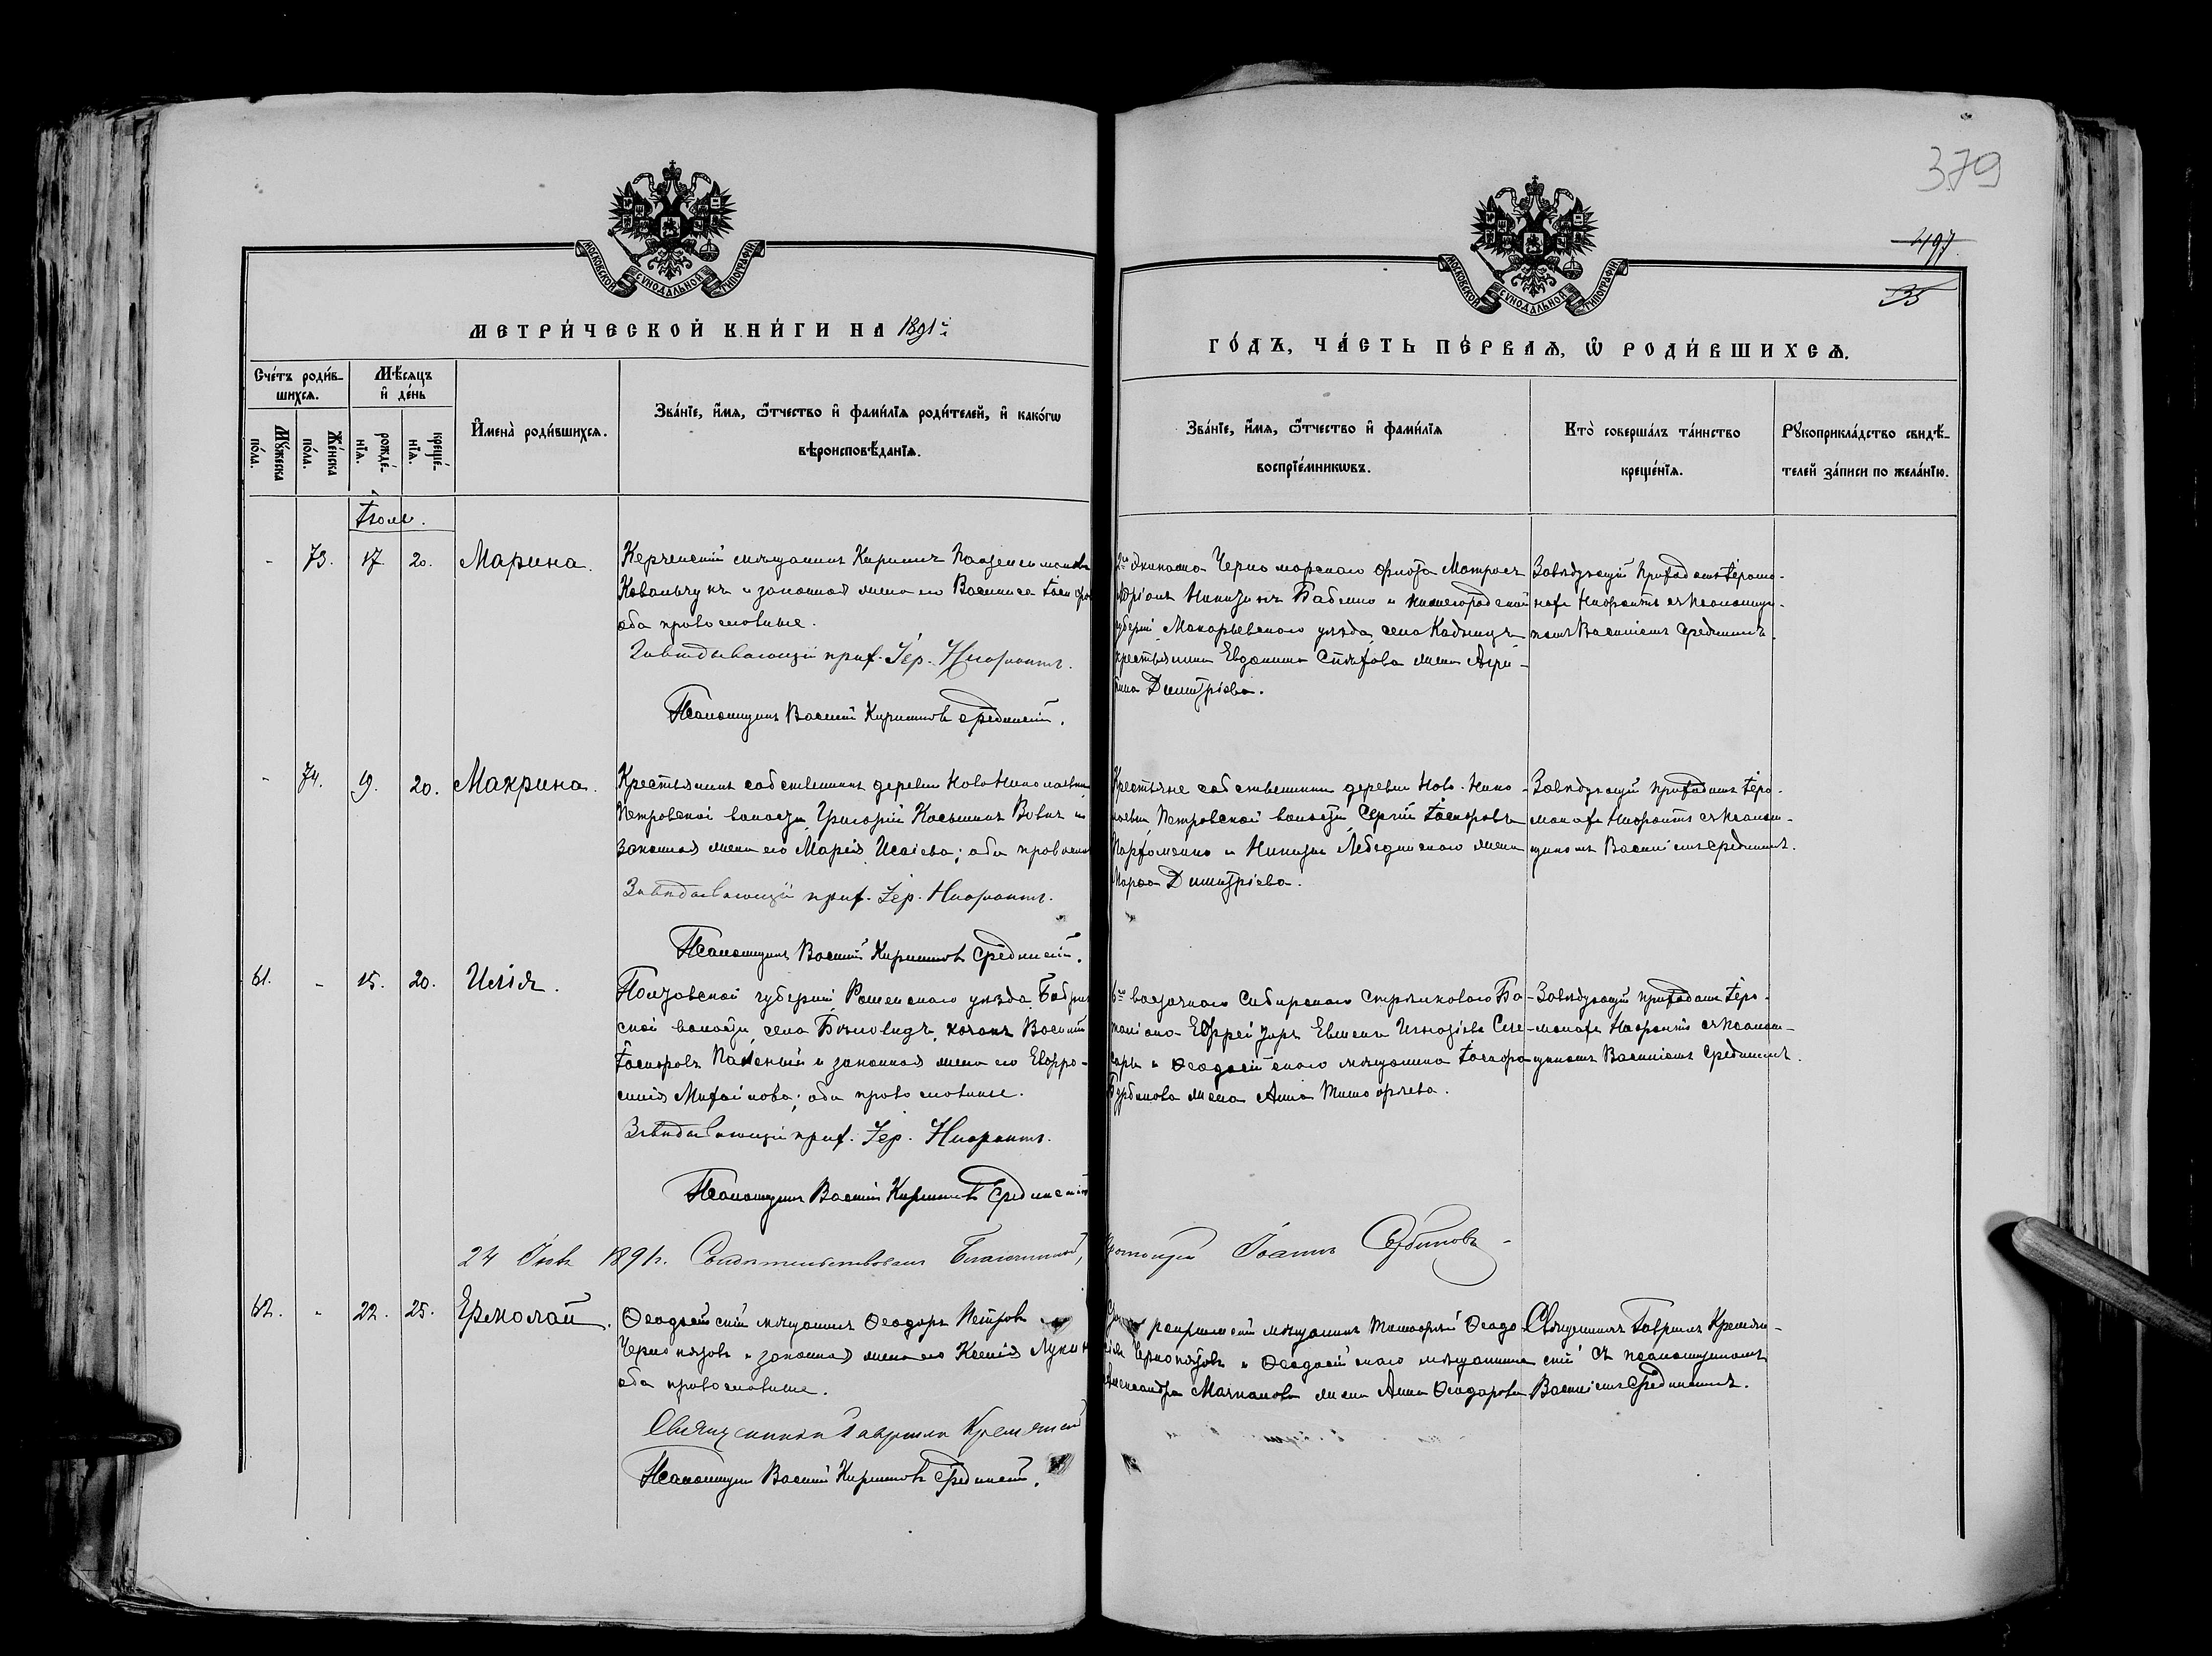 379
497
35
МОСКОВСКОЙ СѴНОДАЛЬНОЙ ТИПОГРАФІИ
МОСКОВСКОЙ СѴНОДАЛЬНОЙ ТИПОГРАФІИ
МЕТРИ́ЧЕСКОЙ КНИ́ГИ НА 1891й
ГО́ДЪ, ЧА́СТЬ ПЕ́РВАѦ, Ѡ҆ РОДИ́ВШИХСѦ.
Сче́тъ роди́в-
шихсѧ.
Мѣ́сѧцъ
и҆ де́нь
Мꙋ́жеска
по́ла.
Же́нска
по́ла.
рожде́-
нїѧ.
креще́-
нїѧ.
И҆мена̀ роди́вшихсѧ.
Зва́нїе, и҆́мѧ, ѻ҆́тчество и҆ фами́лїѧ роди́телей, и҆ како́гѡ
вѣроисповѣ́данїѧ.
Зва́нїе, и҆́мѧ, ѻ҆́тчество и҆ фами́лїѧ
воспрїе́мникѡвъ.
Кто̀ соверша́лъ та́инство
креще́нїѧ.
Рꙋкоприкла́дство свидѣ́-
телей за́писи по жела́нїю.
Іюль.
- 73. 17 20. Марина.
Керченскій мѣщанинъ Кириллъ
Ковальчукъ и законная жена его Василиса
оба православные.
Завѣдывающій прих. Іер. Ніфонтъ.
Псаломщикъ Василій Кирилловъ Срединскій.
2го Экипажа Черноморскаго флота Матросъ
Никитинъ и Нижегородской
губерніи, Макарьевскаго уѣзда, села Кадницъ
крестьянина жена Агри-
пина Димитріева.
Завѣдующій приходомъ Іеромо-
нахъ Нифонтъ съ псаломщи-
комъ Василіемъ Срединскимъ.
- 74. 19. 20. Макрина.
Крестьянинъ собственникъ деревни Ново Николаевки
Петровской волости, Григорій Косьминъ и
законная жена его Марія Исаіева; оба православ
Завѣдывающій прих. Іер. Нифонтъ.
Псаломщикъ Василій Кирилловъ Срединскій.
Крестьяне собственники деревни Ново-Нико-
лаевки, Петровской волости, Сергій Іосифовъ
Пархоменко и Никиты Лебединскаго жена
Димитріева.
Завѣдующій приходомъ Іеро-
монахъ Нифонтъ съ псалом-
щикомъ Василіемъ Срединскимъ.
61. - 15. 20. Илія.
Полтавской губерніи, Роменскаго уѣзда,
ской волости, села козакъ Василій
Іосифовъ и законная жена его Евфро-
синія Михайлова; оба православные.
Завѣдывающій прих. Іер. Нифонтъ.
Псаломщикъ Василій Кирилловъ Срединскій
6го восточнаго Сибирскаго Стрѣлковаго Ба-
таліона Ефрейторъ Игнатіевъ
и Ѳеодосійскаго мѣщанина Іосифа
жена Анна Тимофѣева.
Завѣдующій приходомъ Іеро-
монахъ Нифонтъ съ псалом-
щикомъ Василіемъ Срединскимъ.
24 1891г. Свидѣтельствовалъ Благочинный,
Протоіерей Іоаннъ Сербиновъ
62. - 22. 25. Ермолай.
Ѳеодосійскій мѣщанинъ Ѳеодоръ Петровъ
и законная жена его Ксенія
оба православные.
Священникъ Гавріилъ
Псаломщикъ Василій Кирилловъ Срединскій.
мѣщанинъ Тимофѣй Ѳеодо-
и Ѳеодосійскаго мѣщанина
Александра жена Анна Ѳеодорова
Священникъ Гавріилъ
съ псаломщикомъ
Василіемъ Срединскимъ.